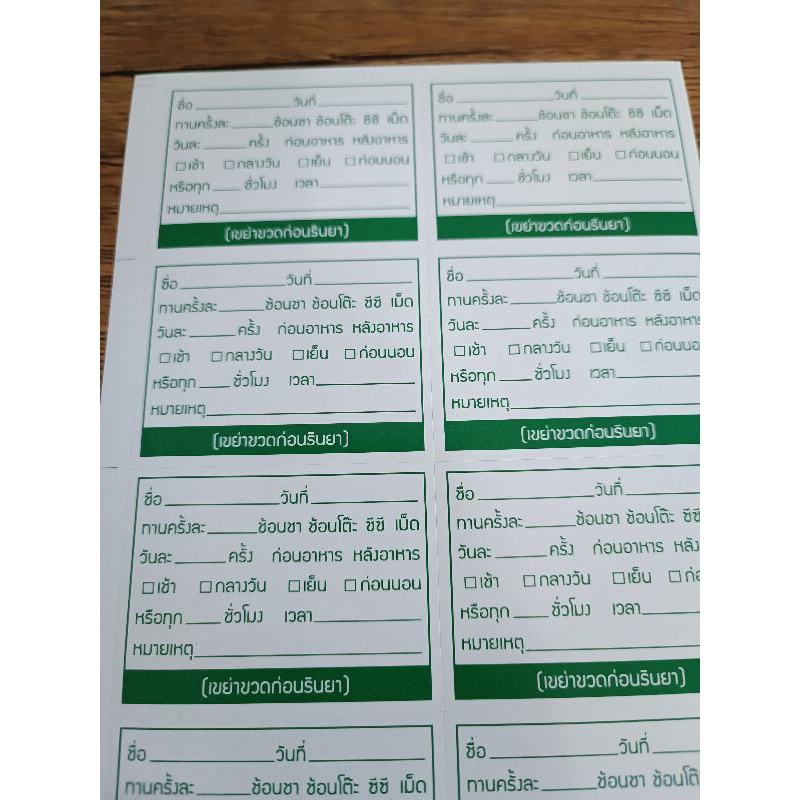 ชื่อ ____________ วันที่ ____________
ทานครั้งละ ______ ช้อนชา ช้อนโต๊ะ ซีซี เม็ด
วันละ ______ ครั้ง ก่อนอาหาร หลังอาหาร
□เช้า □กลางวัน □เย็น □ก่อนนอน
หรือทุก ____ ชั่วโมง เวลา ____________
หมายเหตุ ____________
(เขย่าขวดก่อนรินยา)
ชื่อ ____________ วันที่ ____________
ทานครั้งละ ______ ช้อนชา ช้อนโต๊ะ ซีซี เม็ด
วันละ ______ ครั้ง ก่อนอาหาร หลังอาหาร
□เช้า □กลางวัน □เย็น □ก่อนนอน
หรือทุก ____ ชั่วโมง เวลา ____________
หมายเหตุ ____________
(เขย่าขวดก่อนรินยา)
ชื่อ ____________ วันที่ ____________
ทานครั้งละ ______ ช้อนชา ช้อนโต๊ะ ซีซี เม็ด
วันละ ______ ครั้ง ก่อนอาหาร หลังอาหาร
□เช้า □กลางวัน □เย็น □ก่อนนอน
หรือทุก ____ ชั่วโมง เวลา ____________
หมายเหตุ ____________
(เขย่าขวดก่อนรินยา)
ชื่อ ____________ วันที่ ____________
ทานครั้งละ ______ ช้อนชา ช้อนโต๊ะ ซีซี เม็ด
วันละ ______ ครั้ง ก่อนอาหาร หลังอาหาร
□เช้า □กลางวัน □เย็น □ก่อนนอ
หรือทุก ____ ชั่วโมง เวลา ____________
หมายเหตุ ____________
(เขย่าขวดก่อนรินยา)
ชื่อ ____________ วันที่ ____________
ทานครั้งละ ______ ช้อนชา ช้อนโต๊ะ ซีซี เม็ด
วันละ ______ ครั้ง ก่อนอาหาร หลังอาหาร
□เช้า □กลางวัน □เย็น □ก่อนนอน
หรือทุก ____ ชั่วโมง เวลา ____________
หมายเหตุ ____________
(เขย่าขวดก่อนรินยา)
ชื่อ ____________ วันที่ ____________
ทานครั้งละ ______ ช้อนชา ช้อนโต๊ะ ซีซี
วันละ ______ ครั้ง ก่อนอาหาร หลัง
□เช้า □กลางวัน □เย็น □ก่อ
หรือทุก ____ ชั่วโมง เวลา ____________
หมายเหตุ ____________
(เขย่าขวดก่อนรินยา)
ชื่อ ____________ วันที่ ____________
ทานครั้งละ ______ ช้อนชา ช้อนโต๊ะ ซีซี เม็ด
ชื่อ ____________ วันที่ ____________
ทานครั้งละ ______ ช้อนชา ช้อนโต๊ะ